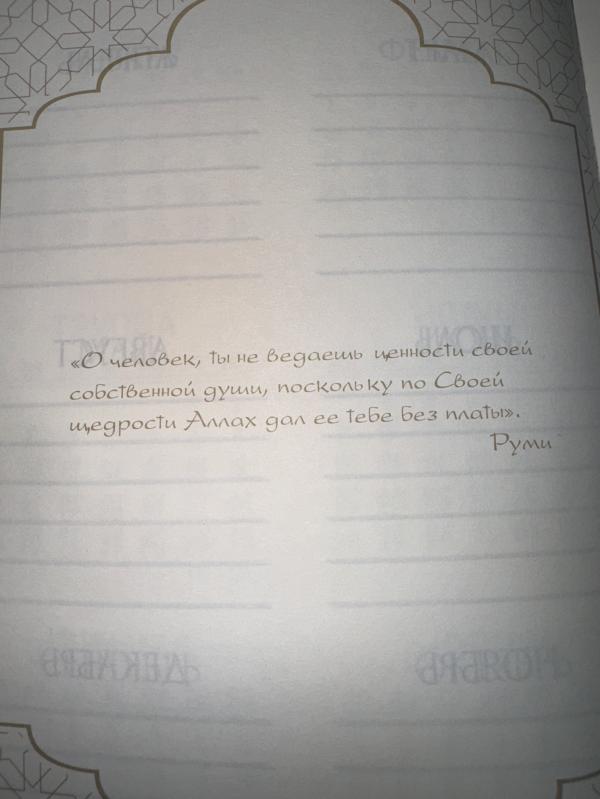 «О человек, ты не ведаешь ценности своей
собственной души, поскольку по Своей
щедрости Аллах дал ее тебе без платы».
Руми
АВГУСТ
ИЮНЬ
ДЕКАБРЬ
НОЯБРЬ